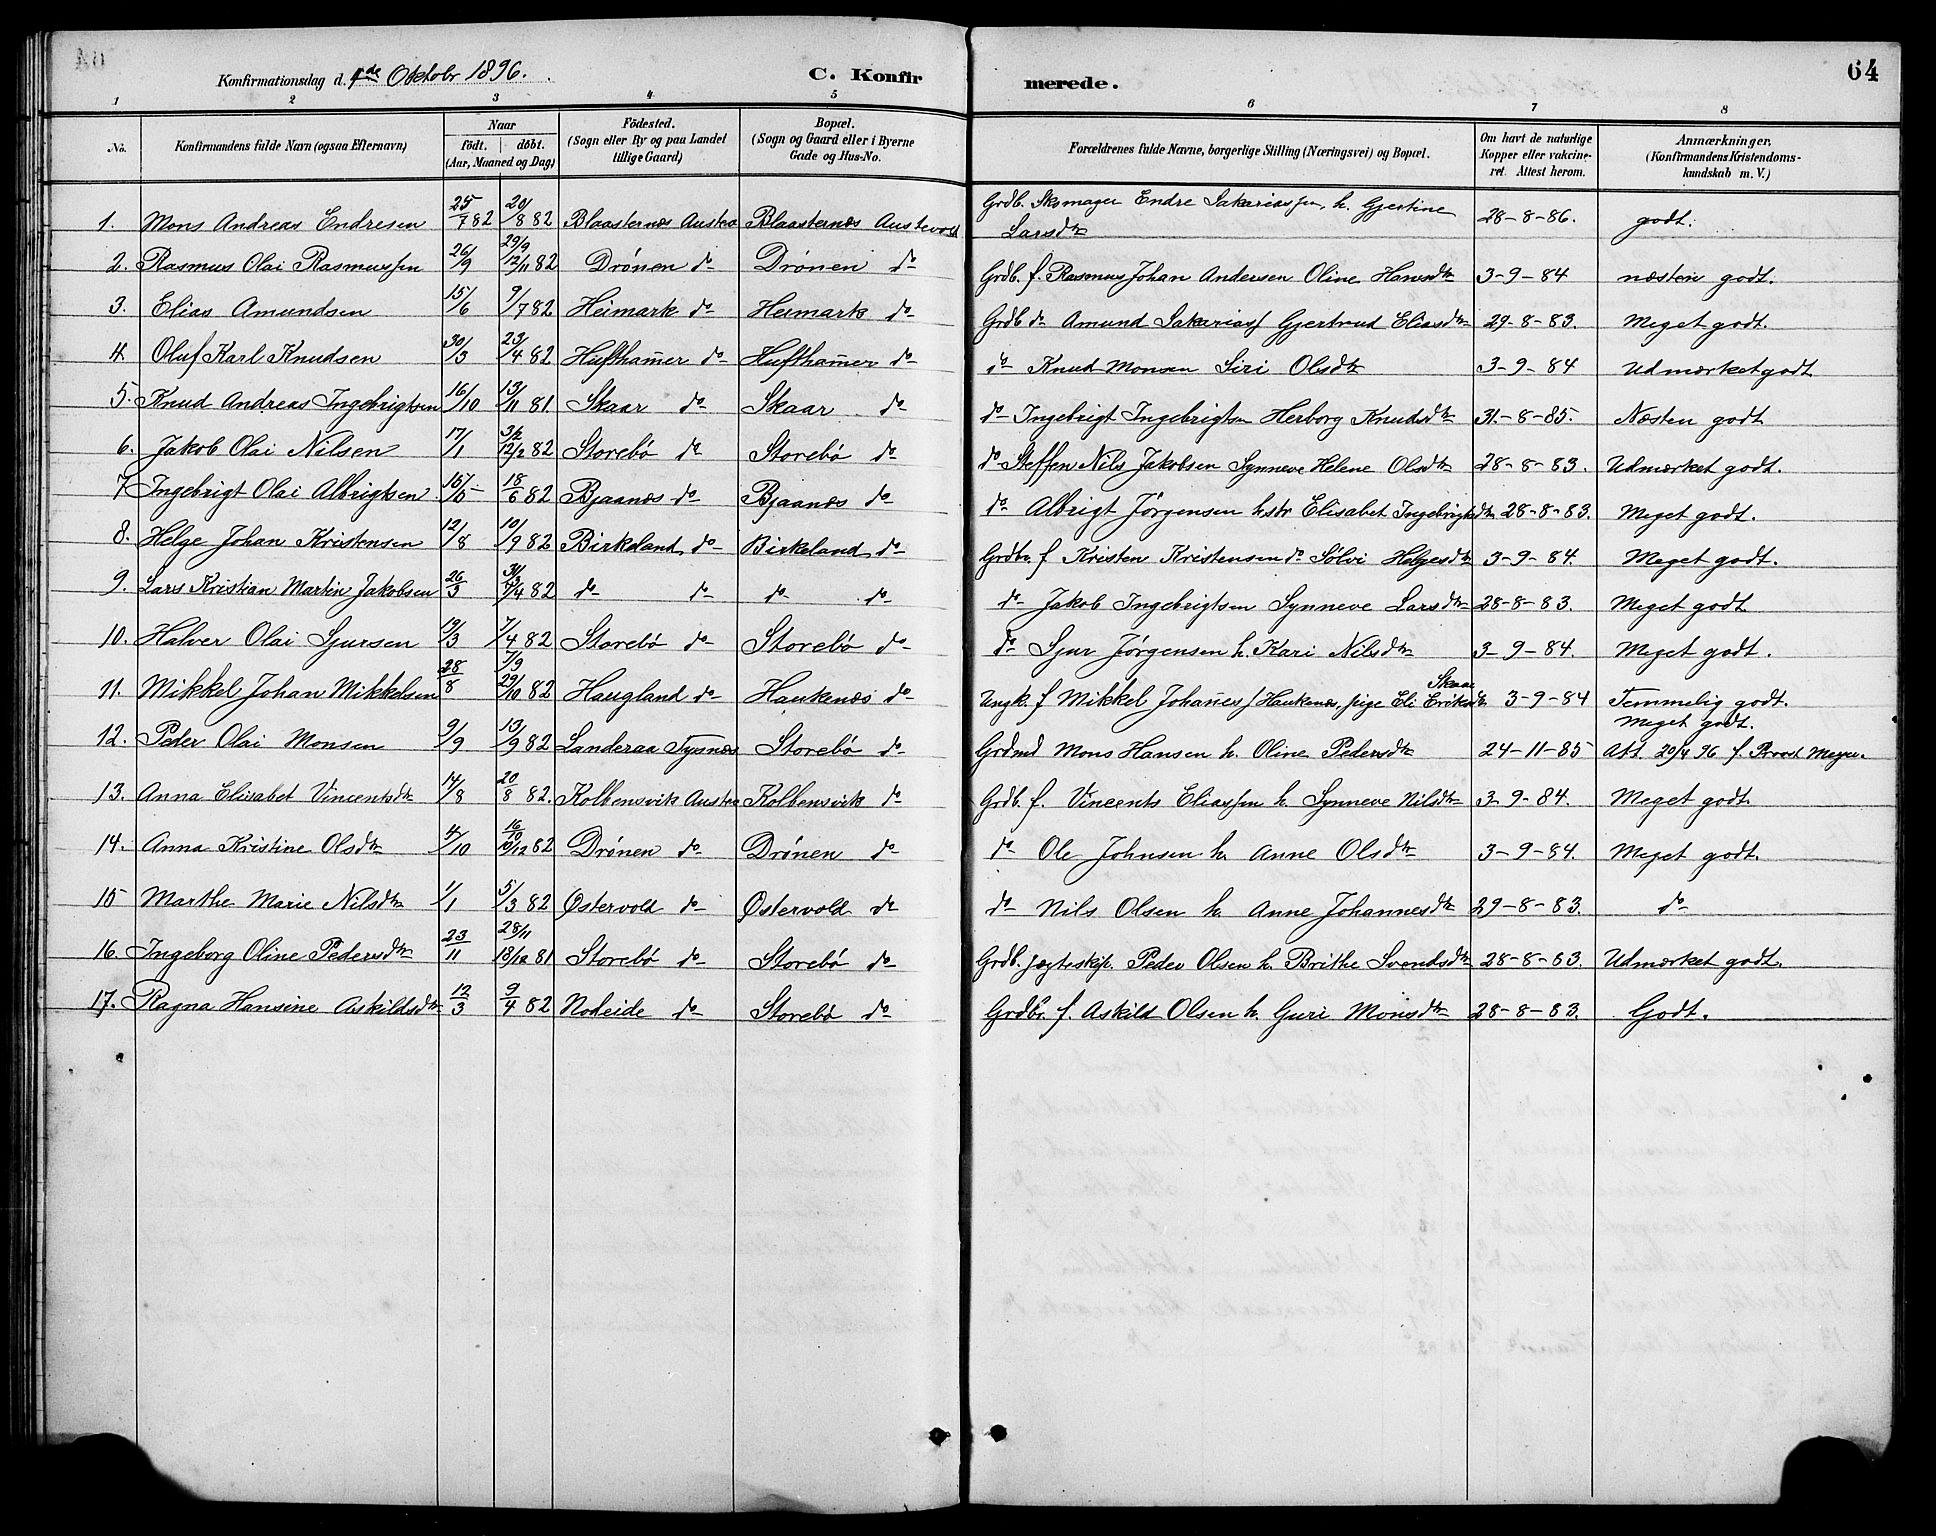 Konfirmationsdag d. 4de Oktobr 1896. C. Konfirmerede. 64
1 2 3 4 5 6 7 8
No. Konfirmandens fulde Navn (ogsaa Efternavn) Naar født. døbt. (Aar, Maaned og Dag) Födested. (Sogn eller By og paa Landet tillige Gaard) Bopæl. (Sogn og Gaard eller i Byerne Gade og Hus-No. Forældrenes fulde Navne, borgerlige Stilling (Næringsvei) og Bopæl. Om havt de naturlige Kopper eller vakcineret. Attest herom. Anmærkninger. (Konfirmandens Kristendomskundskab m. V.)
1. Mons Andreas Endresen 25/7 82 20/8 82 Blaasternæs Austev Blaasternæs Austevold Grdb. Skomager Endre Sakariassen h. Gjertine Larsdtr 28-8-86. godt.
2. Rasmus Olai Rasmussen 26/9 29/9 12/11 82 Drönen do Drönen do Grdb. f. Rasmus Johan Andersen Oline Hansdtr 3-9-84 næsten godt.
3. Elias Amundsen 15/6 9/7 82 Heimark do Heimark do Grdb do Amund Sakarias Gjertrud Eliasdtr 29-8-83. Meget godt.
4. Oluf Karl Knudsen 30/3 23/4 82 Hufthamer do Hufthamer do do Knud Monsen Siri Olsdtr 3-9-84 Udmærket godt
5. Knud Andreas Ingebrigtsen 16/10 13/11 81 Skaar do Skaar do do Ingebrigt Ingebrigtsen Herborg Knudsdtr 31-8-85. Næsten godt
6. Jakob Olai Nilsen 17/1 3/2 12/2 82 Storebö do Storebö do do Steffen Nils Jakobsen Synneve Helene Olsdtr 28-8-83. Udmærket godt.
7. Ingebrigt Olai Albrigtsen 15/5 18/6 82 Bjaanæs do Bjaanæs do do Albrigt Jørgensen hstr Elisabet Ingebrigtsdtr 28-8-83. Meget godt.
8. Helge Johan Kristensen 12/8 10/9 82 Birkeland do Birkeland do Grdbr. f Kristen Kristensen do Sølvi Helgesdtr 3-9-84. Meget godt.
9. Lars Kristian Martin Jakobsen 26/3 31/3 7/4 82 do do do do do Jakob Ingebrigtsen Synneve Larsdtr 28-8-83. Meget godt
10. Halver Olai Sjursen 19/3 7/4 82 Storebö do Storebö do do Sjur Jørgensen h. Kari Nilsdtr 3-9-84. Meget godt.
11. Mikkel Johan Mikkelsen 28/8 7/9 29/10 82 Haugland do Haukenæs do Ungk. f Mikkel Johannes Haukenæs, pige Eli Eriksdtr Skaar 3-9-84 Temmelig godt.
12. Peder Olai Monsen 9/9 13/9 82 Landeraa Tysnæs Storebö do Grdmd Mons Hansen h. Oline Pedersdtr 24-11-85 Meget godt. Att. 20/4 96 f. Provst Meyer.
13. Anna Elisabet Vincentsdtr 14/8 20/8 82. Kolbensvik Austev Kolbensvik do Grdb. f. Vincents Eliassen h. Synneve Nilsdtr 3-9-84. Meget godt.
14. Anna Kristine Olsdtr 4/10 16/10 10/12 82 Drönen do Drönen do do Ole Johnsen h. Anne Olsdtr 3-9-84. Meget godt.
15 Marthe Marie Nilsdtr 1/1 5/3 82 Østervold do Østervold do do Nils Olsen h. Anne Johannesdtr 29-8-83. do
16. Ingeborg Oline Pedersdtr 23/11 28/11 18/12 81 Storebö do Storebö do Grdb. jægteskip. Peder Olsen h. Brithe Svendsdtr 28-8-83. Udmærket godt.
17. Ragna Hansine Askildsdtr 12/3 9/4 82 Nodeide do Storebö do Grdbr. f. Askild Olsen h. Guri Monsdtr 28-8-83. Godt.